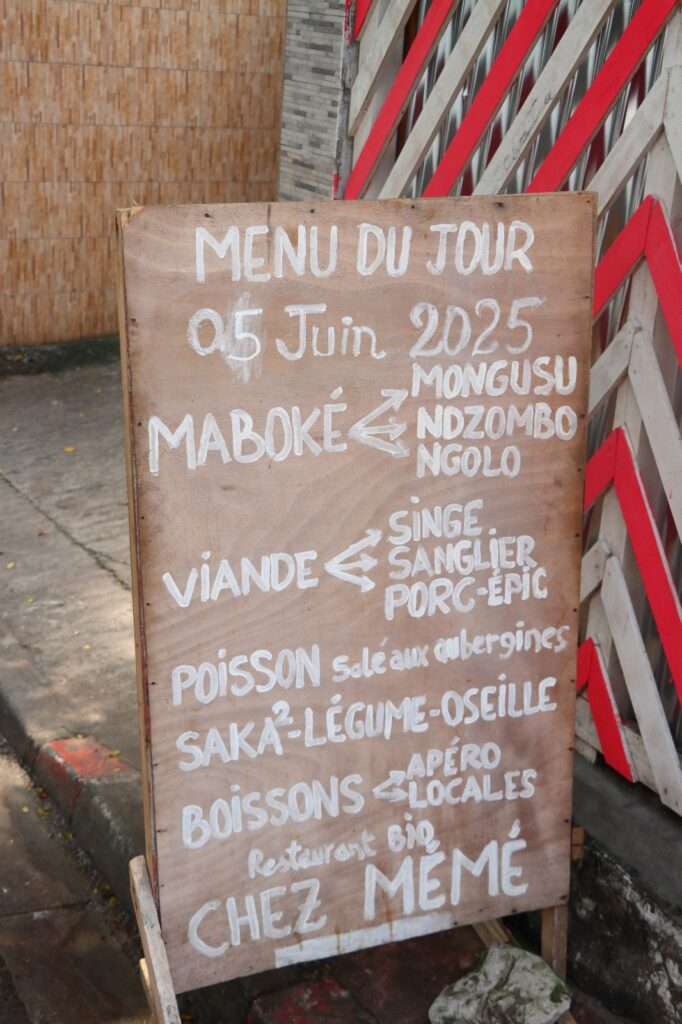 MENU DU JOUR
05 Juin 2025
MABOKÉ
MONGUSU
NDZOMBO
NGOLO
VIANDE
SINGE
SANGLIER
PORC-ÉPIC
POISSON Salé aux aubergines
SAKA²-LÉGUME-OSEILLE
BOISSONS
APÉRO
LOCALES
Restaurant BIO
CHEZ MÉMÉ